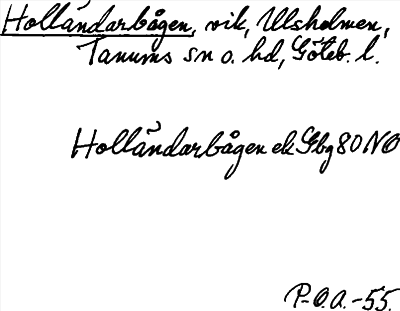 Holländarbågen, vik, Ulsholmen,
Tanums sn o. hd, Göteb. l.
Holländarbågen ek Gbg 80 NO
P-O.A.-55.